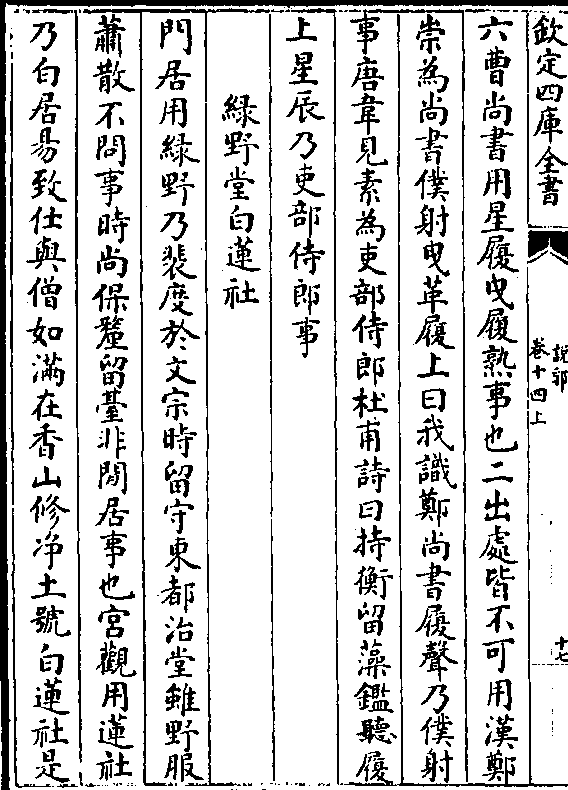 欽定四庫全書
說郛
卷十四上
十七
六曹尚書用星履曳履熟事也二出處皆不可用漢鄭
崇為尚書僕射曳革履上曰我識鄭尚書履聲乃僕射
事唐韋見素為吏部侍郎杜甫詩曰持衡留藻鑑聽履
上星辰乃吏部侍郎事
緑野堂白蓮社
門居用緑野乃裴度於文宗時留守東都治堂雖野服
蕭散不問事時尚保釐留臺非閒居事也宮觀用蓮社
乃白居易致仕與僧如滿在香山修净土號白蓮社是